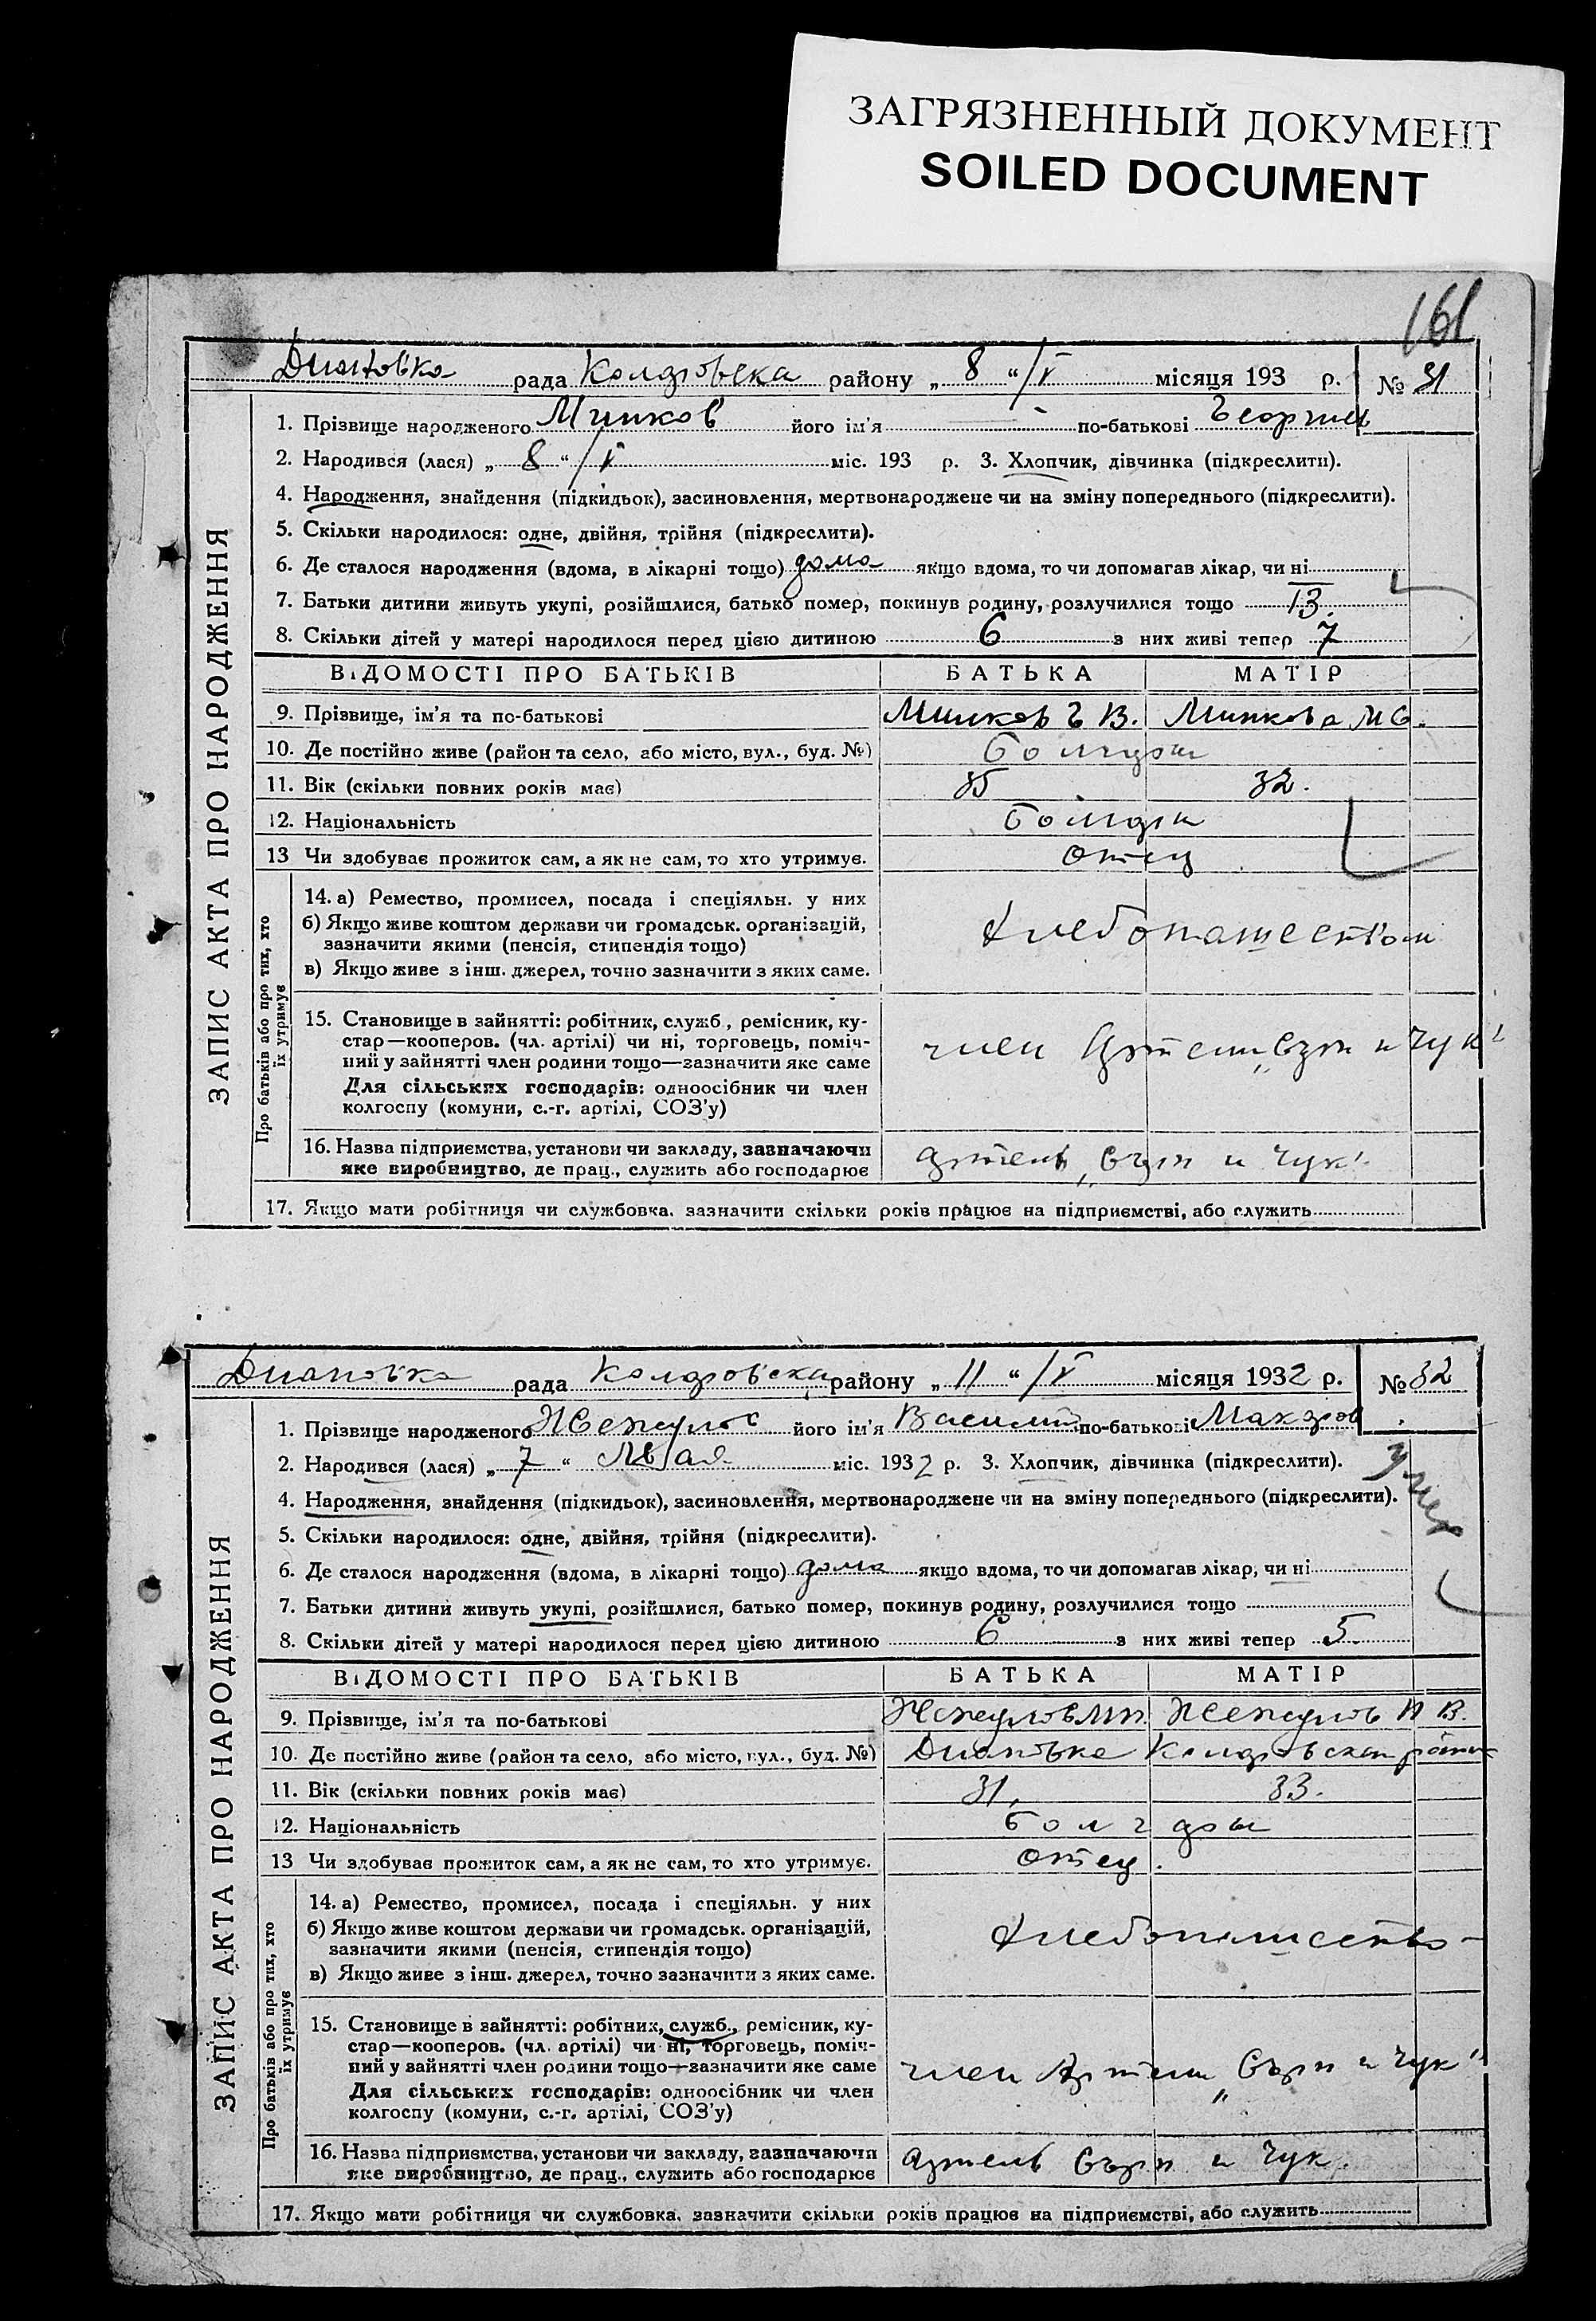 ЗАГРЯЗНЕННЫЙ ДОКУМЕНТ
SOILED DOCUMENT
161
Диановка рада района „ 8 “ /V місяця 193 р. № 31
1. Прізвище народженого Минков його ім'я — по-батькові Георгиев
2. Народився (лася) „ 8 “ /V міс. 193 р. 3. Хлопчик, дівчинка (підкреслити).
4. Народження, знайдення (підкидьок), засиновлення, мертвонароджене чи на зміну попереднього (підкреслити).
5. Скільки народилося: одне, двійня, трійня (підкреслити).
6. Де сталося народження (вдома, в лікарні тощо) дома якщо вдома, то чи допомагав лікар, чи ні
7. Батьки дитини живуть укупі, розійшлися, батько помер, покинув родину, розлучилися тощо
8. Скільки дітей у матері народилося перед цією дитиною 6 з них живі тепер 7
ВІДОМОСТІ ПРО БАТЬКІВ БАТЬКА МАТІР
9. Прізвище, ім'я та по-батькові Минков Г В. Минкова М С.
10. Де постійно живе (район та село, або місто, вул., буд. №)
11. Вік (скільки повних років має) 35 32.
12. Національність болгары
13 Чи здобуває прожиток сам, а як не сам, то хто утримує. отец
14. а) Ремество, промисел, посада і спеціяльн. у них
б) Якщо живе коштом держави чи громадськ. організацій,
зазначити якими (пенсія, стипендія тощо)
в) Якщо живе з інш. джерел, точно зазначити з яких саме.
хлебопашеством
15. Становище в зайнятті: робітник, служб., ремісник, ку-
стар—кооперов. (чл. артілі) чи ні, торговець, поміч-
ний у зайнятті член родини тощо—зазначити яке саме
Для сільських господарів: одноосібник чи член
колгоспу (комуни, с.-г. артілі, СОЗ'у)
член Артели „Сърп и Чук"
16. Назва підприємства, установи чи закладу, зазначаючи
яке виробництво, де прац., служить або господарює
артель „Сърп и Чук"
17. Якщо мати робітниця чи службовка, зазначити скільки років працює на підприємстві, або служить
ЗАПИС АКТА ПРО НАРОДЖЕННЯ
Про батьків або про тих, хто
їх утримує
Диановка рада району „ 11 “ /V місяця 1932 р. № 32
1. Прізвище народженого його ім'я Василий по-батькові Макаров
2. Народився (лася) „ 7 “ Мая міс. 1932 р. 3. Хлопчик, дівчинка (підкреслити).
4. Народження, знайдення (підкидьок), засиновлення, мертвонароджене чи на зміну попереднього (підкреслити).
5. Скільки народилося: одне, двійня, трійня (підкреслити).
6. Де сталося народження (вдома, в лікарні тощо) дома якщо вдома, то чи допомагав лікар, чи ні
7. Батьки дитини живуть укупі, розійшлися, батько помер, покинув родину, розлучилися тощо
8. Скільки дітей у матері народилося перед цією дитиною 6 з них живі тепер 5.
ВІДОМОСТІ ПРО БАТЬКІВ БАТЬКА МАТІР
9. Прізвище, ім'я та по-батькові
10. Де постійно живе (район та село, або місто, вул., буд. №) Диановка
11. Вік (скільки повних років має) 31. 33.
12. Національність болгары
13 Чи здобуває прожиток сам, а як не сам, то хто утримує. отец.
14. а) Ремество, промисел, посада і спеціяльн. у них
б) Якщо живе коштом держави чи громадськ. організацій,
зазначити якими (пенсія, стипендія тощо)
в) Якщо живе з інш. джерел, точно зазначити з яких саме.
хлебопашество
15. Становище в зайнятті: робітник, служб., ремісник, ку-
стар—кооперов. (чл. артілі) чи ні, торговець, поміч-
ний у зайнятті член родини тощо—зазначити яке саме
Для сільських господарів: одноосібник чи член
колгоспу (комуни, с.-г. артілі, СОЗ'у)
член Артели „Сърп и Чук"
16. Назва підприємства, установи чи закладу, зазначаючи
яке виробництво, де прац., служить або господарює
артель Сърп и Чук.
17. Якщо мати робітниця чи службовка, зазначити скільки років працює на підприємстві, або служить
ЗАПИС АКТА ПРО НАРОДЖЕННЯ
Про батьків або про тих, хто
їх утримує